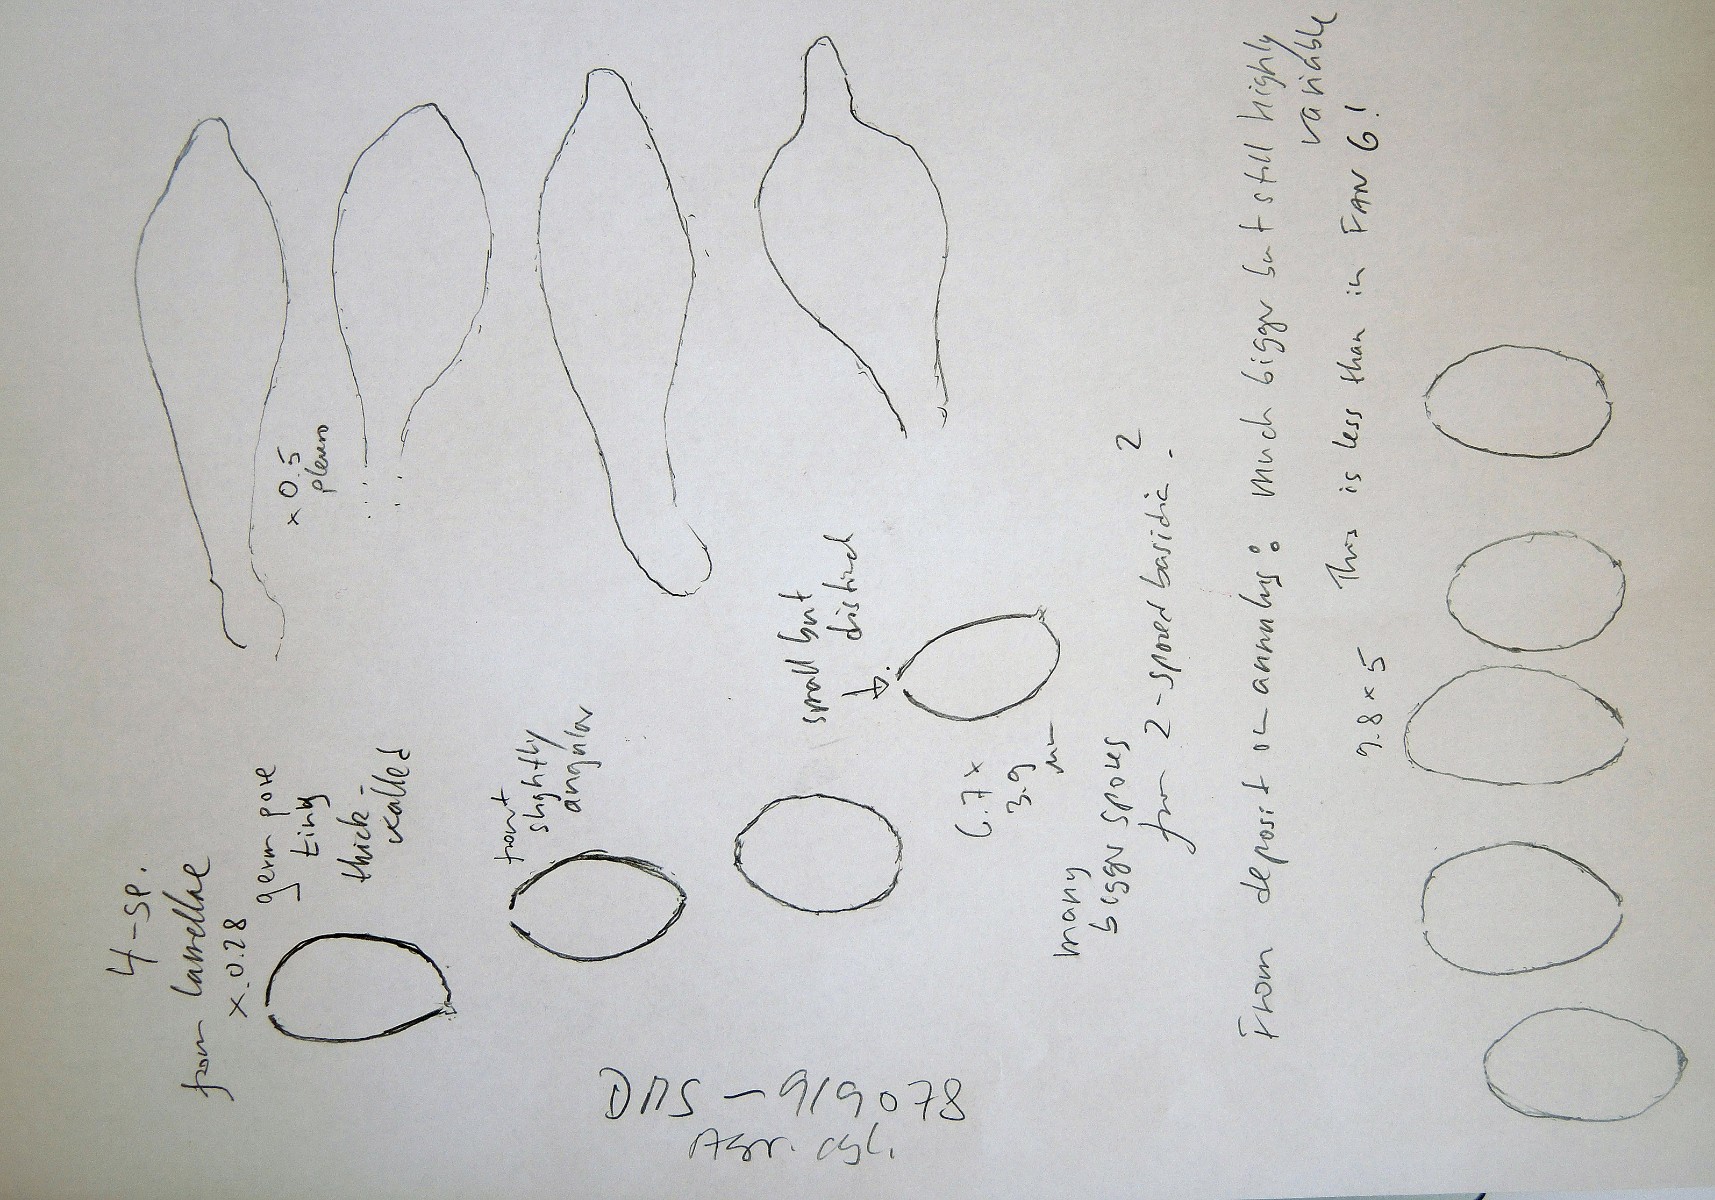 4-sp.
from lamellae
x 0.28
germ pore
tiny
thick-
walled
x 0.5
pleuro
front
slightly
angular
small but
distinct
6.7 x
3.9
many
bigger spores
from 2-spored basidia. 2
DMS-919078
Agr. cyl.
From deposit on annulus: Much bigger but still highly
variable
9.8 x 5 This is less than in FAN 6!